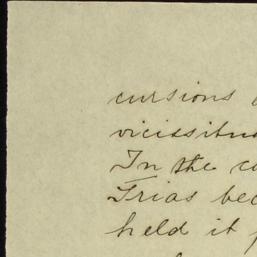 cursions
vicissitud
In the co
Trias bec
held it